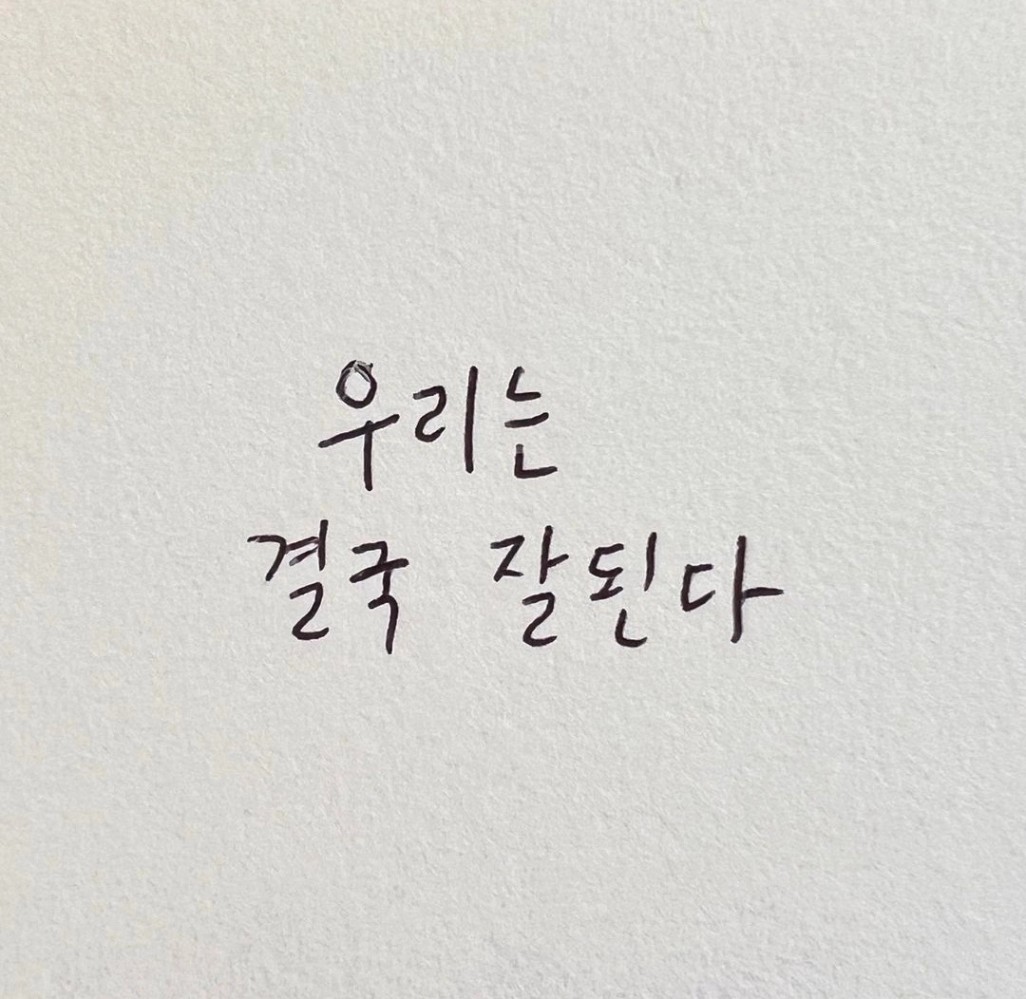 우리는
결국 잘된다